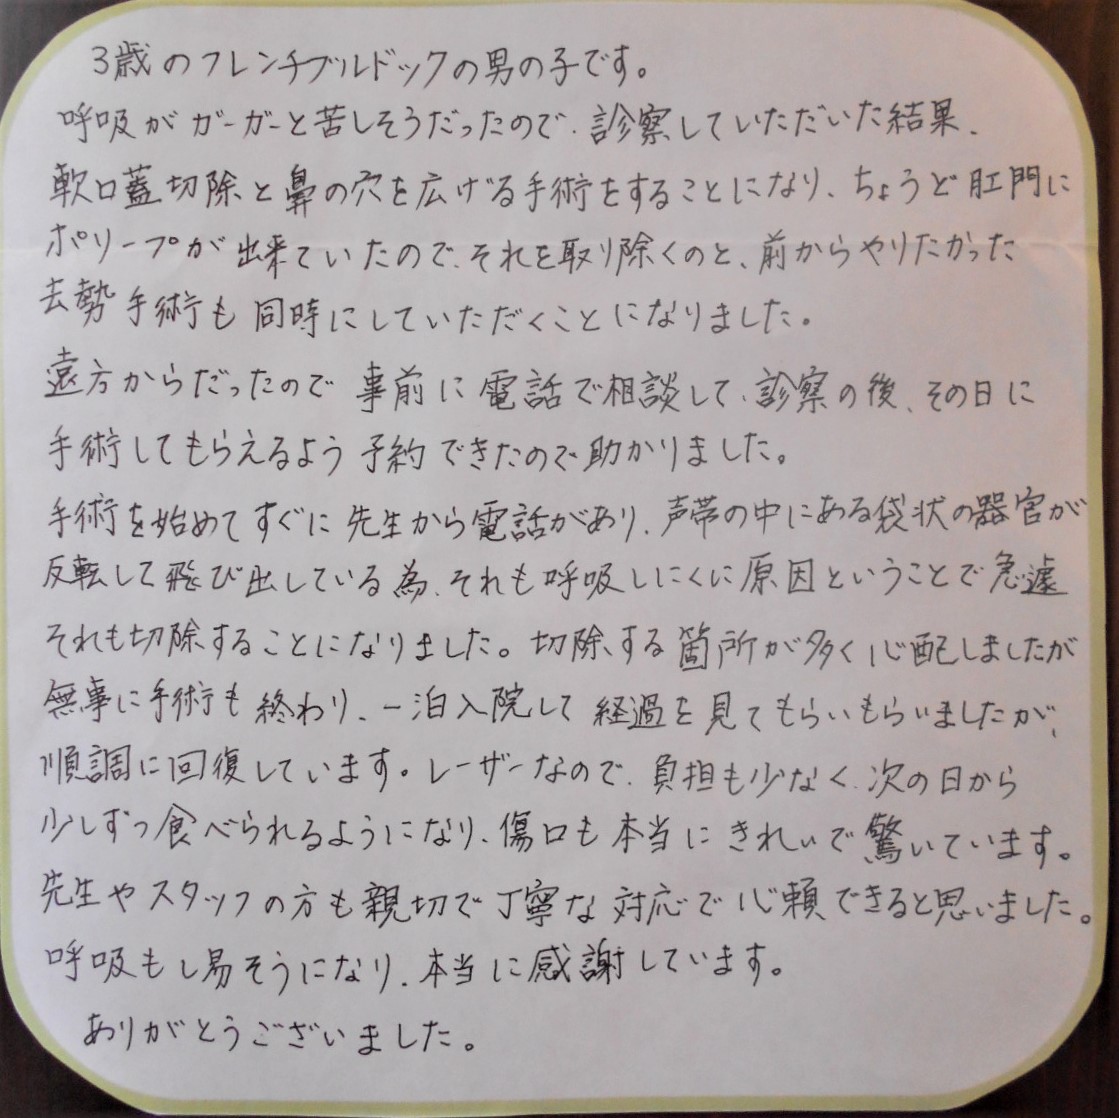 3歳のフレンチブルドックの男の子です。
呼吸がガーガーと苦しそうだったので、診察していただいた結果、
軟口蓋切除と鼻の穴を広げる手術をすることになり、ちょうど肛門に
ポリープが出来ていたので、それを取り除くのと、前からやりたかった
去勢手術も同時にしていただくことになりました。
遠方からだったので事前に電話で相談して、診察の後、その日に
手術してもらえるよう予約できたので助かりました。
手術を始めてすぐに先生から電話があり、声帯の中にある袋状の器官が
反転して飛び出している為、それも呼吸しにくに原因ということで急遽
それも切除することになりました。切除する箇所が多く心配しましたが
無事に手術も終わり、一泊入院して経過を見てもらいもらいましたが、
順調に回復しています。レーザーなので、負担も少なく、次の日から
少しずつ食べられるようになり、傷口も本当にきれいで驚いています。
先生やスタッフの方も親切で丁寧な対応で心頼できると思いました。
呼吸もし易そうになり、本当に感謝しています。
ありがとうございました。